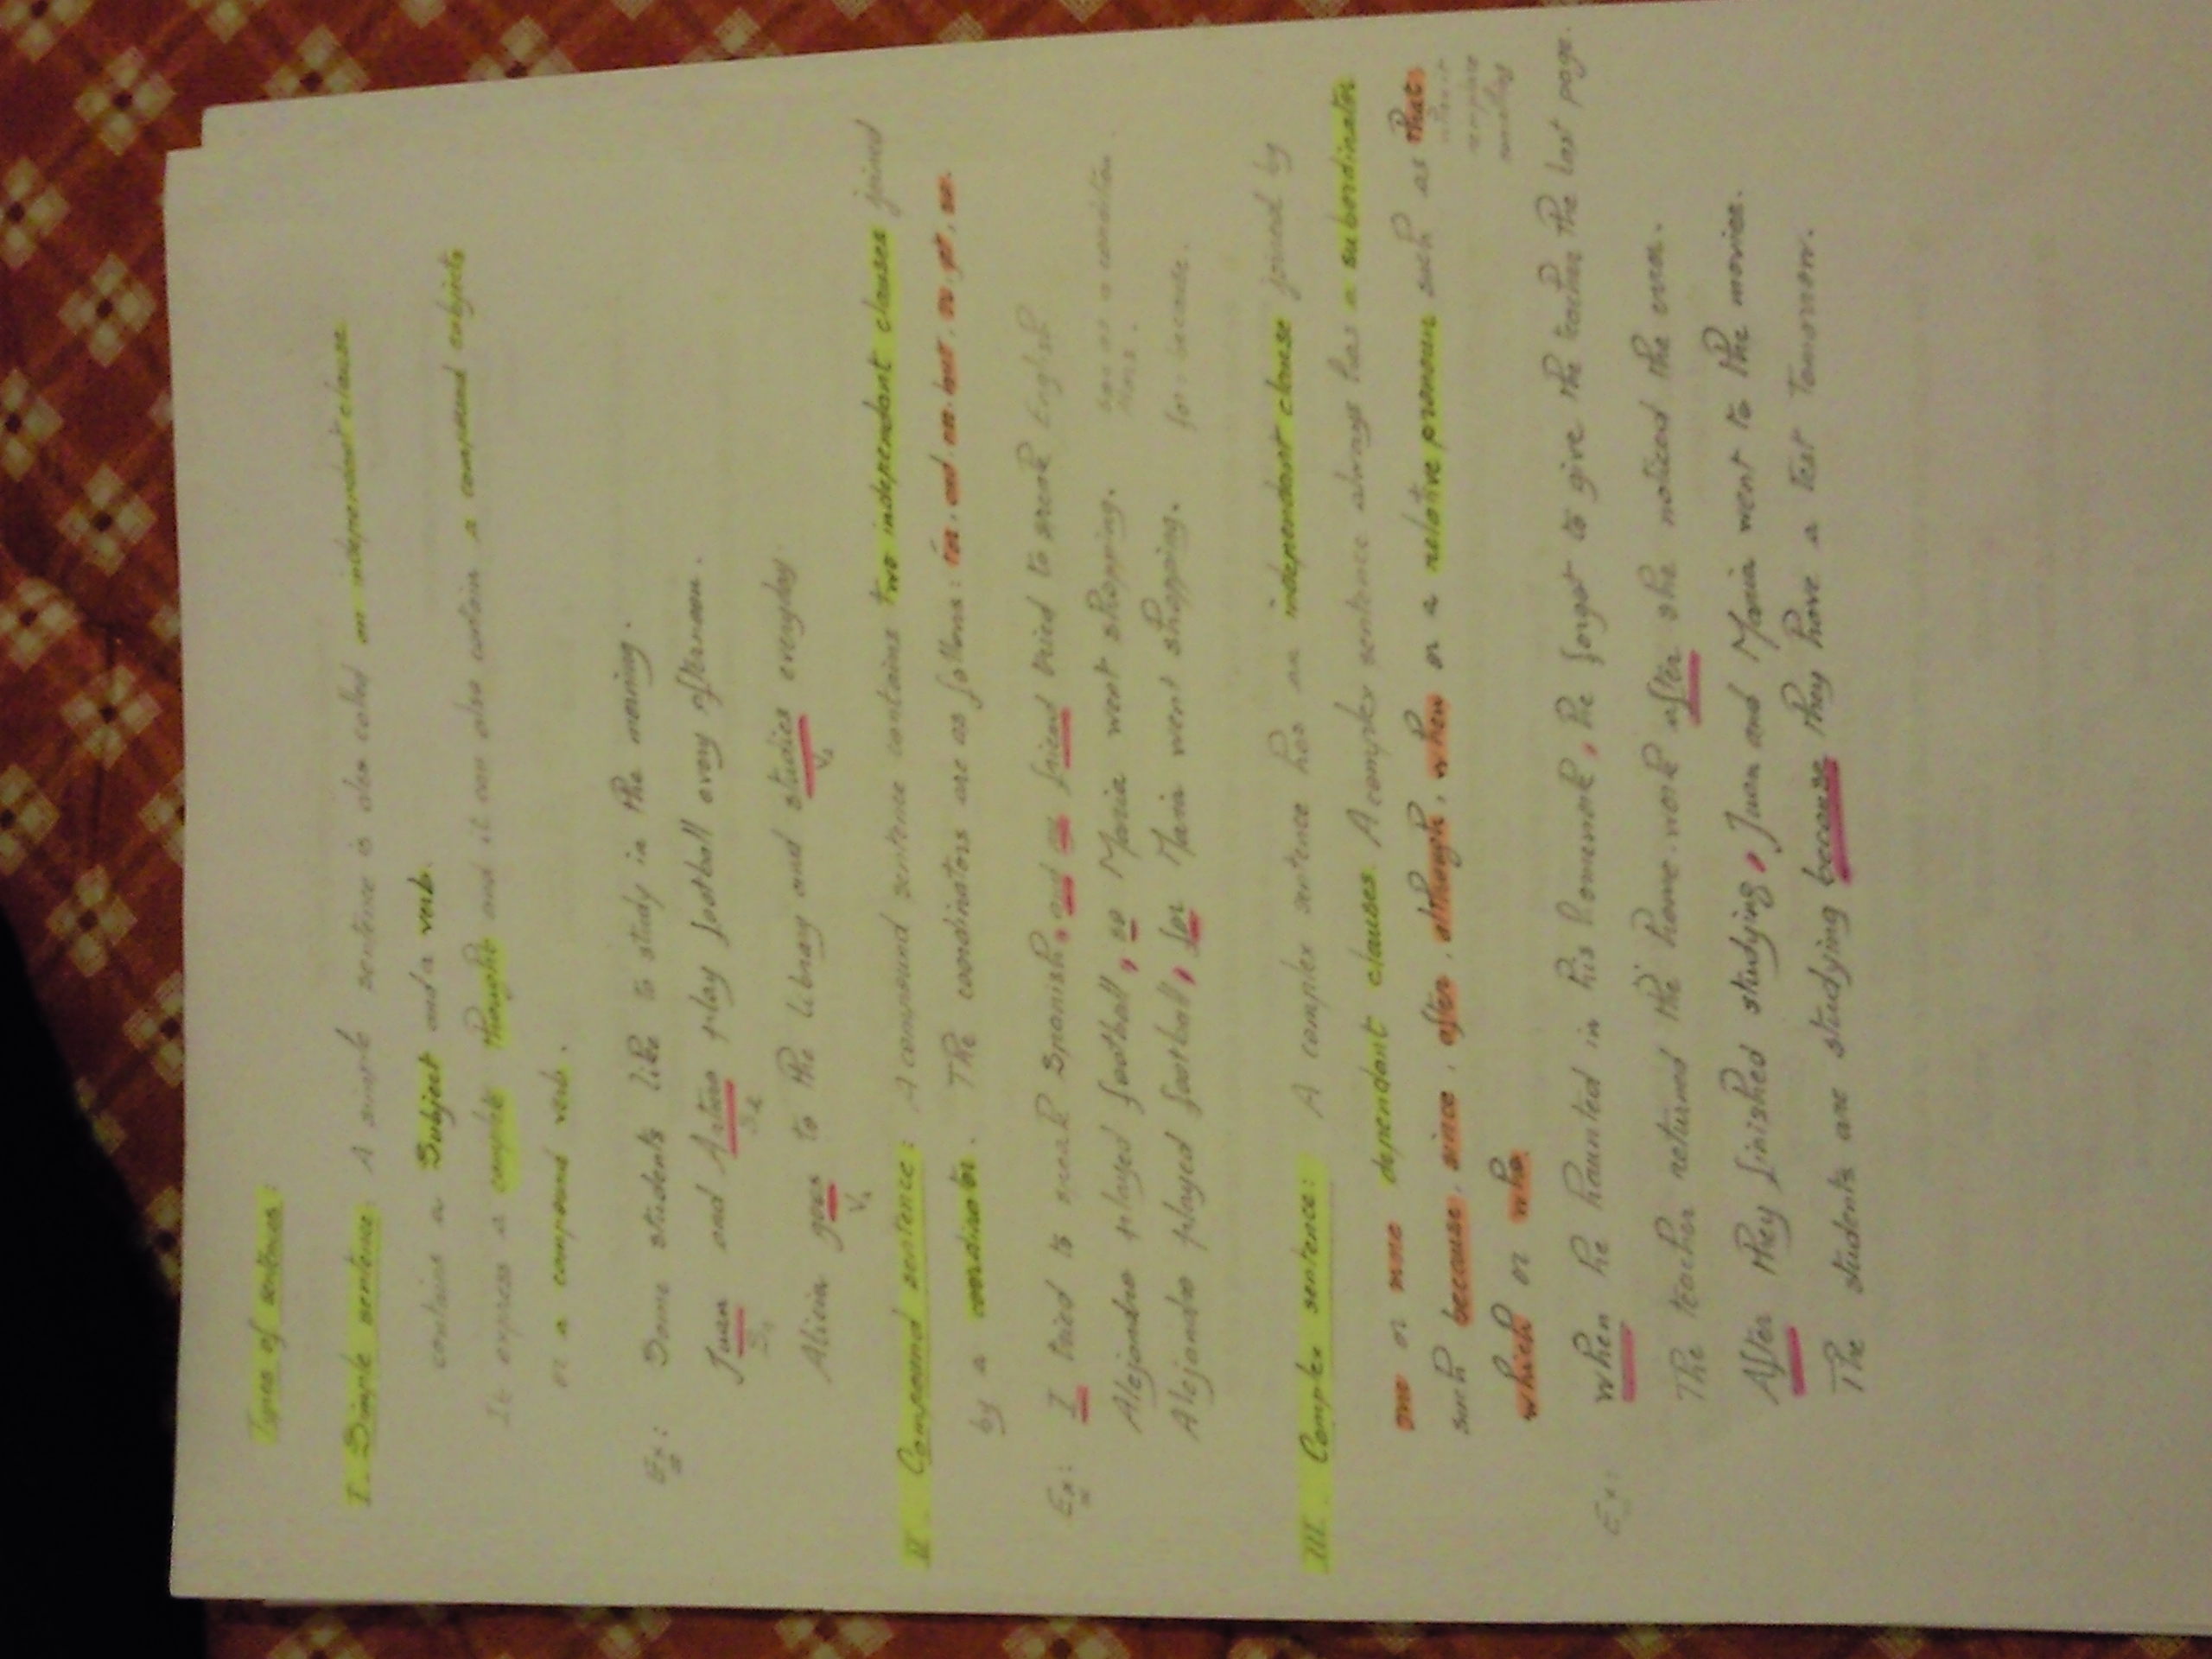 Types of sentences:
I. Simple sentence: A simple sentence is also called an independent clause
contains a Subject and a verb.
It express a complete thought and it can also contain a compound subjects
or a compound verb.
Ex: Some students like to study in the morning.
Juan and Arturo play football every afternoon.
S1 S2
Alicia goes to the library and studies everyday.
V1 V2
II. Compound sentence: A compound sentence contains two independent clauses joined
by a coordinator. The coordinators are as follows: for, and, nor, but, or, yet, so.
Ex: I tried to speak Spanish, and friend tried to speak English
Alejandro played football, so Maria went shopping.
Alejandro played football, for Maria went shopping. for: because.
III. Complex sentence: A complex sentence has an independent clause joined by
one or more dependant clauses. A complex sentence always has a subordinator
such because, since, after, although, when or a relative pronoun such as that
which or who
Ex: When he handed in his homework, he forgot to give the teacher the last page.
The teacher returned the home-work after she noticed the error.
After they finished studying, Juan and Maria went to the movies.
The students are studying because they have a test tomorrow.